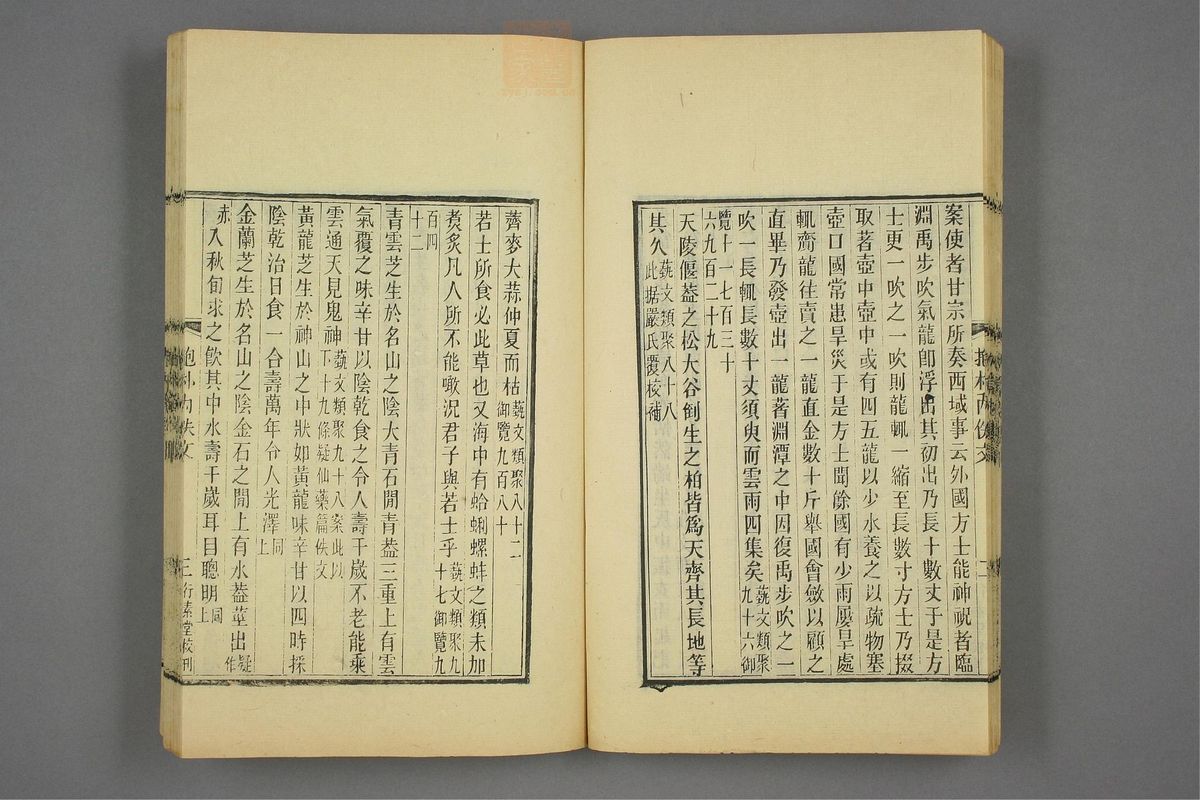 案使者甘宗所奏西域事云外國方士能神祝者臨
淵禹步吹氣龍卽浮出其初出乃長十數丈于是方
士更一吹之一吹則龍輒一縮至長數寸方士乃掇
取著壺中壺中或有四五龍以少水養之以疏物塞
壺口國常患旱災于是方士聞餘國有少雨屢旱處
輒齎龍往賣之一龍直金數十斤舉國會斂以顧之
直畢乃發壺出一龍著淵潭之中因復禹步吹之一
吹一長輒長數十丈須臾而雲雨四集矣 蓺文類聚九十六御
覽十一七百三十
六九百二十九
天陵偃葢之松大谷倒生之柏皆爲天齊其長地等
其久 蓺文類聚八十八
此据嚴氏覆校補
抱朴內佚文
二
薺麥大蒜仲夏而枯 蓺文類聚八十二
御覽九百八十
若士所食必此草也又海中有蛤蜊螺蚌之類未加
煮炙凡人所不能噉況君子與若士乎 蓺文類聚九
十七御覽九
百四
十二
青雲芝生於名山之陰大青石閒青葢三重上有雲
氣覆之味辛甘以陰乾食之令人壽千歲不老能乘
雲通天見鬼神 蓺文類聚九十八案此以
下十九條疑仙藥篇佚文
黃龍芝生於神山之中狀如黃龍味辛甘以四時採
陰乾治日食一合壽萬年令人光澤 同
上
金蘭芝生於名山之陰金石之閒上有水葢莖出 疑
作
赤 入秋旬求之飮其中水壽千歲耳目聰明 同
上
抱朴內佚文
三
行素堂校刊